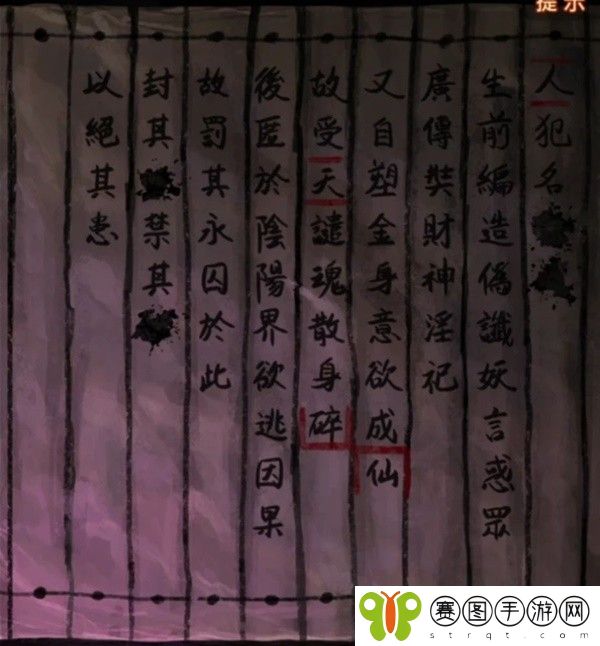 提示
人犯名
生前編造偽讖妖言惑眾
廣傳奘財神淫祀
又自塑金身意欲成仙
故受天譴魂散身碎
後匿於陰陽界欲逃因果
故罰其永囚於此
封其禁其
以絕其患
赛图手游网
strqt.com